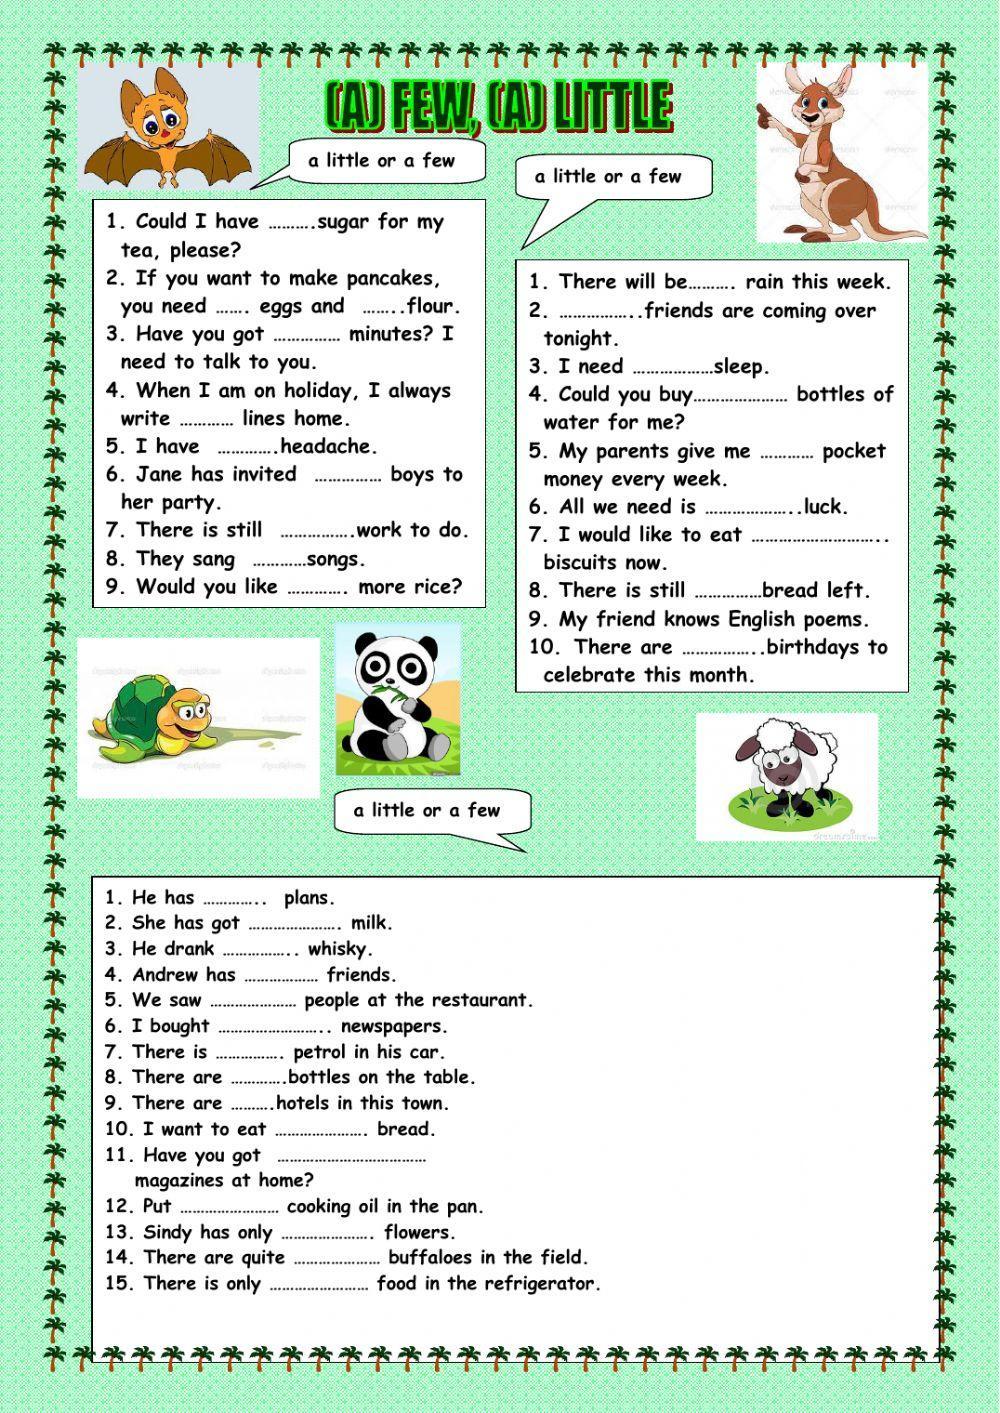 (A) FEW, (A) LITTLE
a little or a few
1. Could I have ……….sugar for my
tea, please?
2. If you want to make pancakes,
you need ……. eggs and ……..flour.
3. Have you got …………… minutes? I
need to talk to you.
4. When I am on holiday, I always
write ………… lines home.
5. I have ………….headache.
6. Jane has invited …………… boys to
her party.
7. There is still …………….work to do.
8. They sang …………songs.
9. Would you like …………. more rice?
a little or a few
1. There will be………. rain this week.
2. ……………..friends are coming over
tonight.
3. I need ………………sleep.
4. Could you buy………………… bottles of
water for me?
5. My parents give me ………… pocket
money every week.
6. All we need is ………………..luck.
7. I would like to eat ………………………..
biscuits now.
8. There is still ……………bread left.
9. My friend knows English poems.
10. There are ……………..birthdays to
celebrate this month.
a little or a few
1. He has ………….. plans.
2. She has got …………………. milk.
3. He drank …………….. whisky.
4. Andrew has ……………… friends.
5. We saw ………………… people at the restaurant.
6. I bought …………………….. newspapers.
7. There is ……………. petrol in his car.
8. There are ………….bottles on the table.
9. There are ……….hotels in this town.
10. I want to eat …………………. bread.
11. Have you got ………………………………
magazines at home?
12. Put …………………… cooking oil in the pan.
13. Sindy has only …………………. flowers.
14. There are quite ………………… buffaloes in the field.
15. There is only …………………… food in the refrigerator.